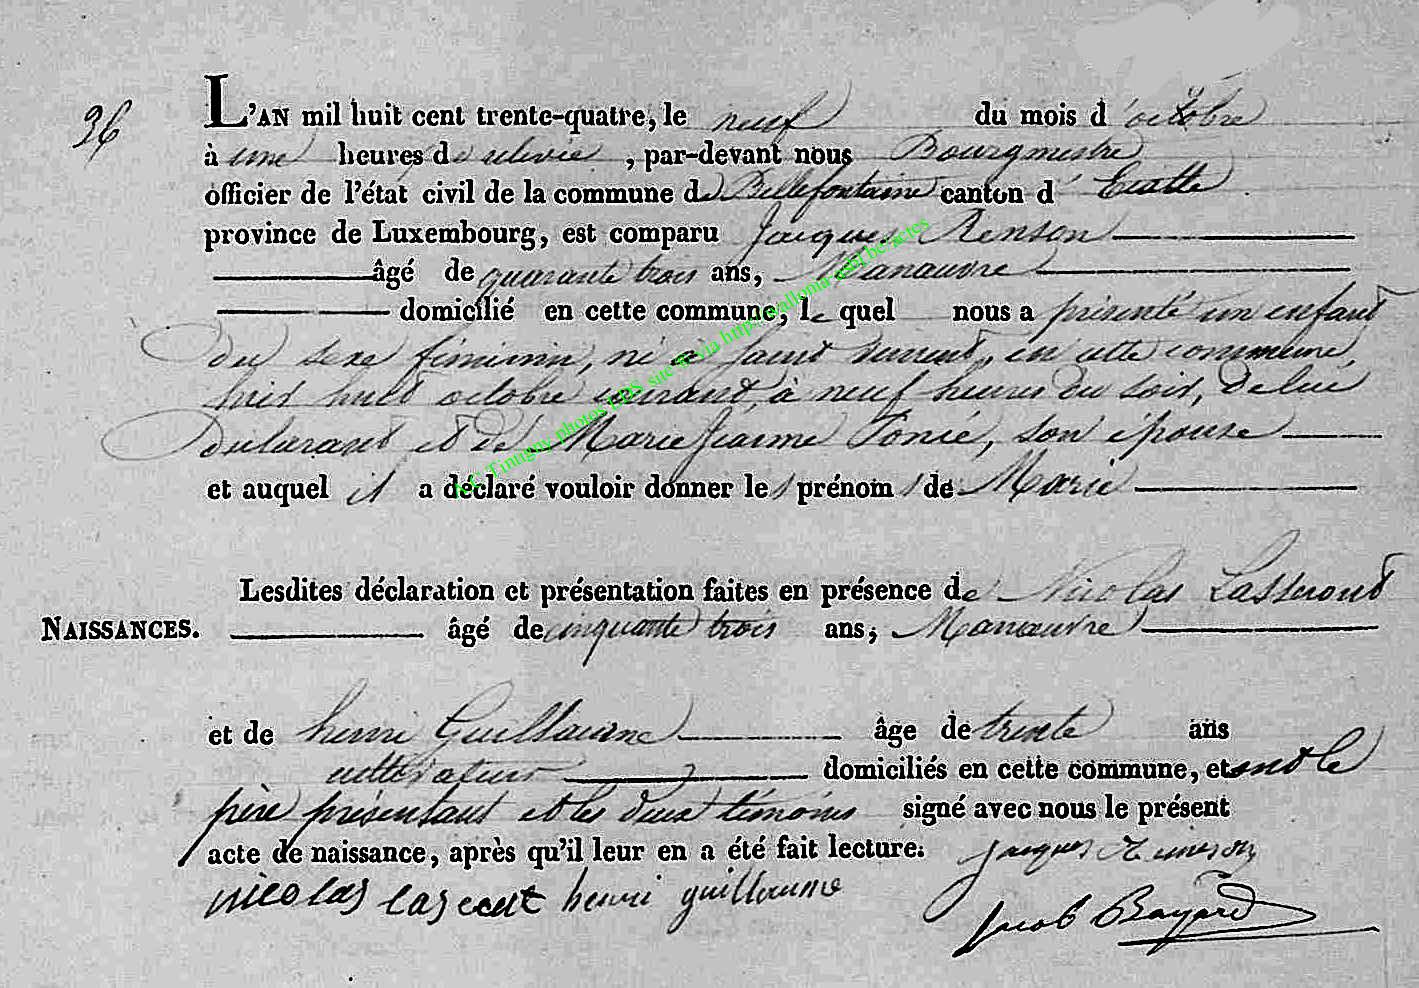 36
L'AN mil huit cent trente-quatre, le neuf du mois d'octobre
à une heures de relevée, par-devant nous Bourgmestre
officier de l'état civil de la commune de Bellefontaine canton d'Etalle
province de Luxembourg, est comparu Jacques Renson
âgé de quarante trois ans, Manœuvre
domicilié en cette commune, le quel nous a présenté un enfant
du sexe féminin, né à saint vincent, en cette commune,
hier huit octobre courant, à neuf heures du soir, de lui
déclarant et de Marie Jeanne Tonié, son épouse
et auquel il a déclaré vouloir donner les prénoms de Marie
Lesdites déclaration et présentation faites en présence de Nicolas
NAISSANCES. âgé de cinquante trois ans, Manœuvre
et de henri Guillaume âge de trente ans
cultivateur domiciliés en cette commune, et ont le
père présentant et les deux témoins signé avec nous le présent
acte de naissance, après qu'il leur en a été fait lecture.
Jacques
nicolas henri guillaume
Jacob Bayard
A.C Tintigny photos LDS site @ via http://wallonia-asbl.be/actes